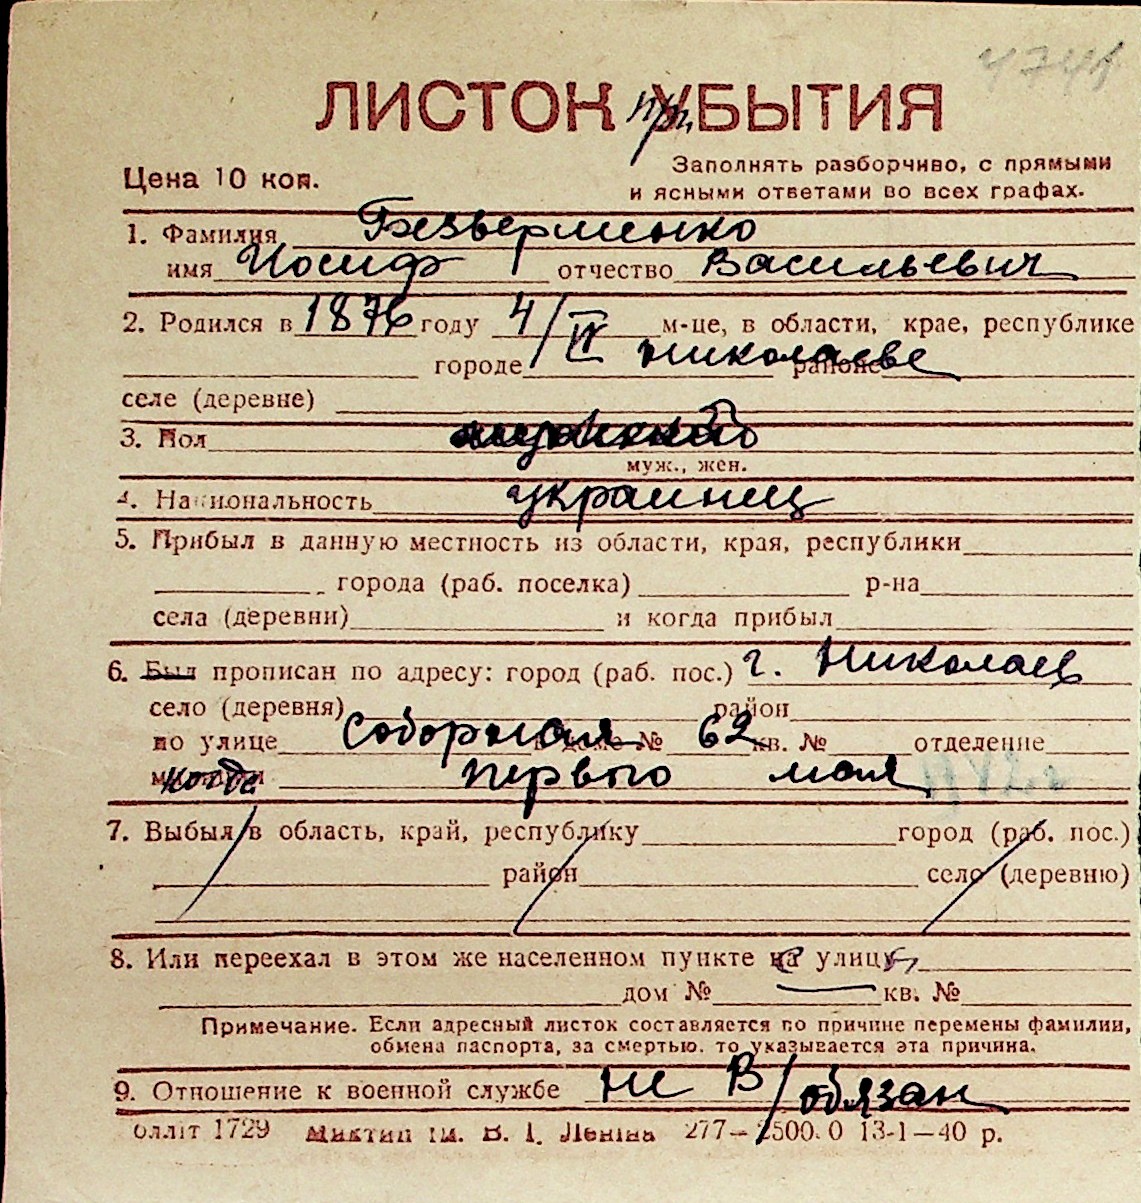 4741
ЛИСТОК при УБЫТИЯ
Цена 10 коп.
Заполнять разборчиво, с прямыми
и ясными ответами во всех графах.
1. Фамилия Безверменко
имя Иосиф отчество Васильевич
2. Родился в 1876 году 4/IV м-це, в области, крае, республике
городе Николаеве районе
селе (деревне)
3. Пол мужской
муж., жен.
4. Национальность украинец
5. Прибыл в данную местность из области, края, республики
города (раб. поселка) р-на
села (деревни) и когда прибыл
6. Был прописан по адресу: город (раб. пос.) г. Николаев
село (деревня) район
по улице Соборная в доме № 62 кв. № отделение
милиции когда первого мая 1942 г
7. Выбыл в область, край, республику город (раб. пос.)
район село (деревню)
8. Или переехал в этом же населенном пункте на улицу
дом № кв. №
Примечание. Если адресный листок составляется по причине перемены фамилии,
обмена паспорта, за смертью. то указывается эта причина.
9. Отношение к военной службе не В/обязан
облліт 1729 Миктип ім. В. І. Леніна 277— 2500.0 13-1—40 р.